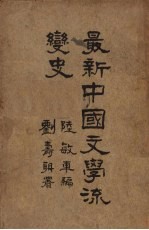 最新中國文學流
變史
陸敏車編
劉壽    署